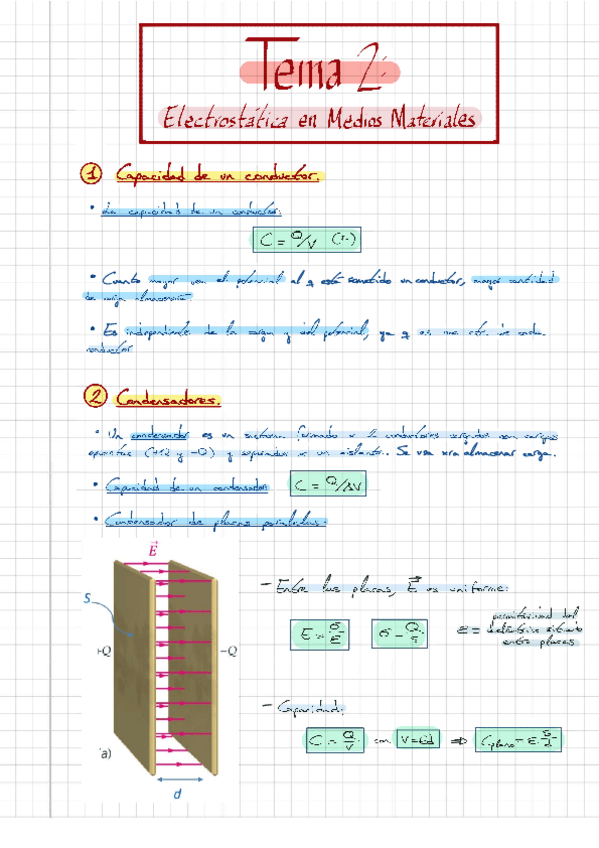 Tema 2:
Electrostática en Medios Materiales
1 Capacidad de un conductor.
• La capacidad de un conductor:
C = Q/V
• Cuanto mayor sea el potencial al q esté sometido un conductor, mayor cantidad
de carga almacena
• Es independiente de la carga y del potencial, ya q es una cte. de cada
conductor
2 Condensadores.
• Un condensador es un sistema formado x 2 conductores cargados con cargas
opuestas (+Q y -Q) y separados x un aislante. Se usa xra almacenar carga.
• Capacidad de un condensador C = Q/ΔV
• Condensador de placas paralelas.
E
S
+Q
-Q
a)
d
- Entre las placas, E es uniforme:
E = σ/ε σ = Q/S ε = permitividad del
dieléctrico situado
entre placas
- Capacidad:
C = Q/V con V = Ed ⇒ Cplano = ε S/d